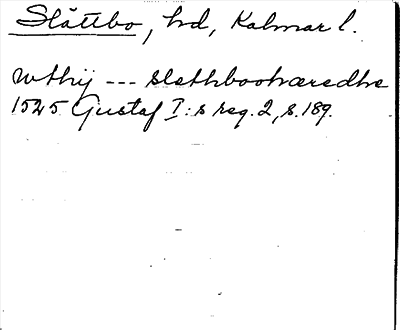 Slättbo, hd, Kalmar l.
wthij --- slethboohæredhe
1525 Gustaf I:s reg. 2, s. 189.